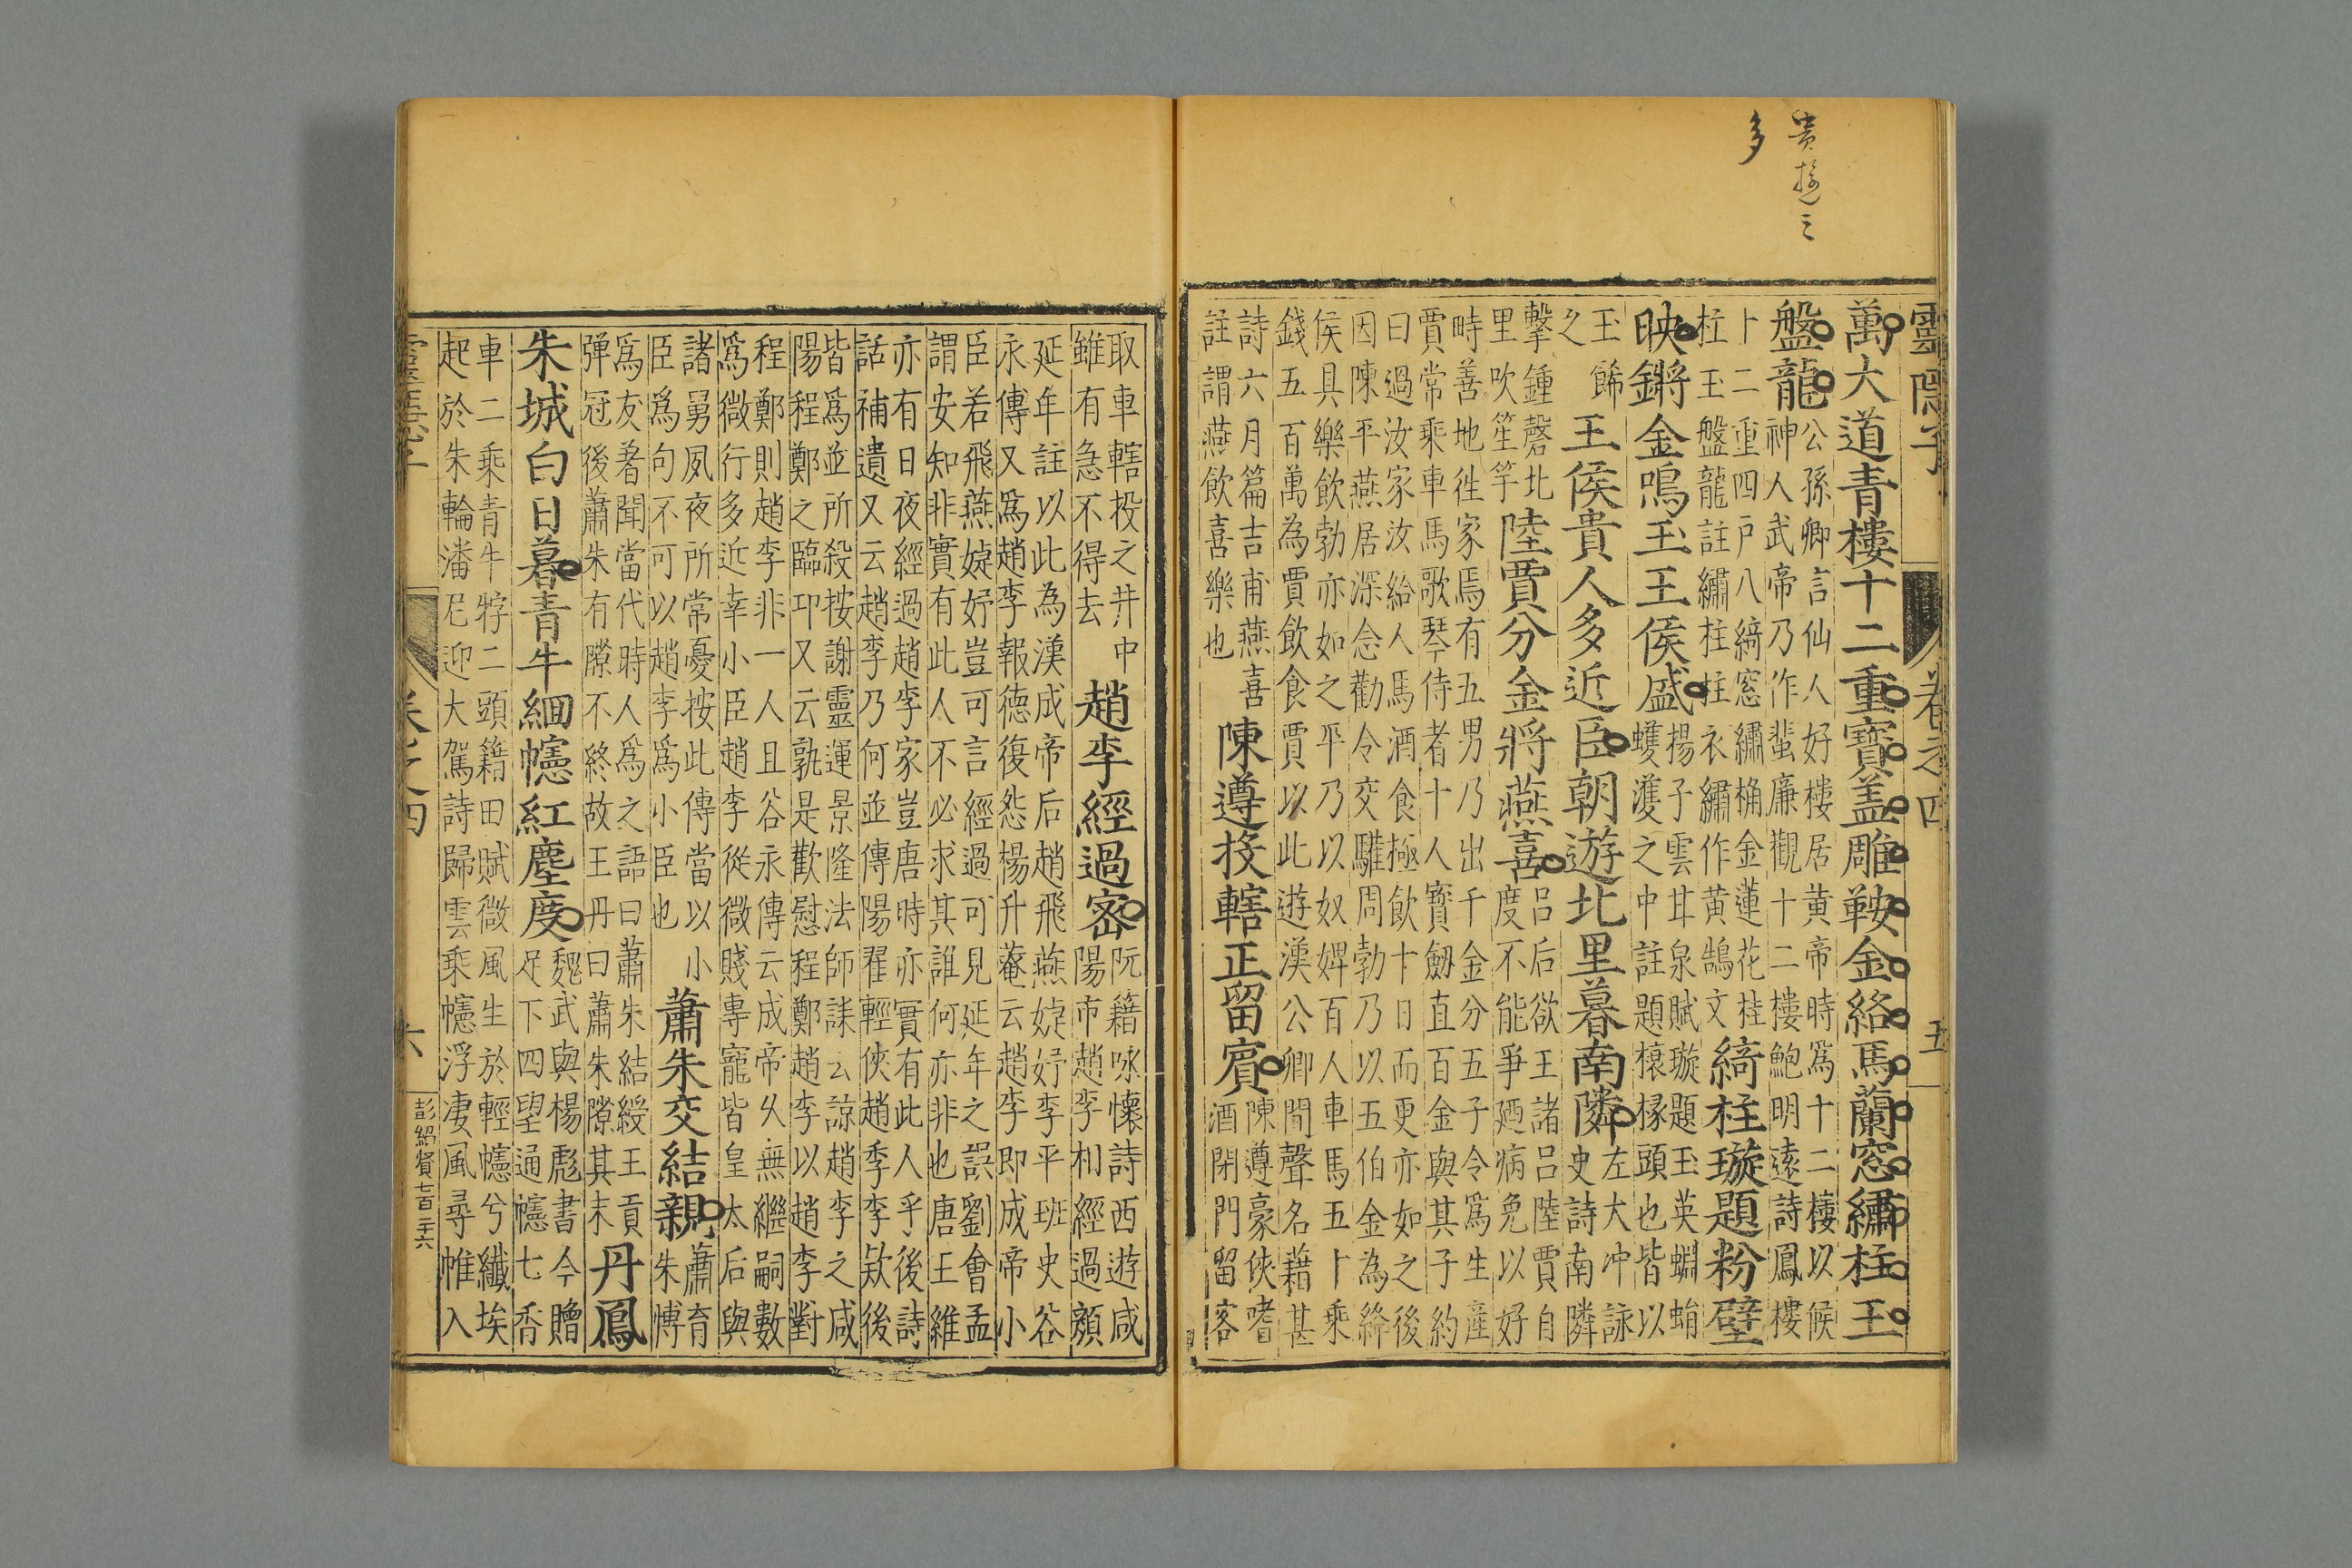 靈隱子
卷之四
五
萬大道青樓十二重寶盖雕鞍金絡馬蘭窓繡柱玉
盤龍
公孫卿言仙人好樓居黃帝時爲十二樓以候
神人武帝乃作蜚廉觀十二樓鮑明遠詩鳳樓
十二重四戶八綺窓繡桷金蓮花桂
柱玉盤龍註繡柱柱衣繡作黃鵠文
綺柱璇題粉壁
映鏘金鳴玉王侯盛
揚子雲甘泉賦璇題玉英蜵蜎
蠖濩之中註題榱椽頭也皆以
玉餙
之
王侯貴人多近臣朝遊北里暮南隣
左太冲詠
史詩南隣
擊鍾磬北
里吹笙竽
陸賈分金將燕喜
呂后欲王諸呂陸賈自
度不能爭廼病免以好
畤善地徃家焉有五男乃出千金分五子令爲生產
賈常乘車馬歌琴侍者十人寳劒直百金與其子約
曰過汝家汝給人馬酒食極飲十日而更亦如之後
因陳平燕居深念勸令交驩周勃乃以五伯金為絳
侯具樂飲勃亦如之平乃以奴婢百人車馬五十乘
錢五百萬為賈飲食賈以此遊漢公卿間聲名藉甚
詩六月篇吉甫燕喜
註謂燕飲喜樂也
陳遵投轄正留賓
陳遵豪俠嗜
酒閉門留客
取車轄投之井中
雖有急不得去
趙李經過密
阮籍咏懷詩西遊咸
陽市趙李相經過顏
延年註以此為漢成帝后趙飛燕婕妤李平班史谷
永傳又爲趙李報德復怨楊升菴云趙李即成帝小
臣若飛燕婕妤豈可言經過可見延年之誤劉會孟
謂安知非實有此人不必求其誰何亦非也唐王維
亦有日夜經過趙李家豈唐時亦實有此人乎後詩
話補遺又云趙李乃何並傳陽翟輕俠趙季李欵後
皆爲並所殺按謝靈運景隆法師誄云諒趙李之咸
陽程鄭之臨邛又云孰是歡慰程鄭趙李以趙李對
程鄭則趙李非一人且谷永傳云成帝久無繼嗣數
爲微行多近幸小臣趙李從微賤專寵皆皇太后與
諸舅夙夜所常憂按此傳當以小
臣爲句不可以趙李爲小臣也
蕭朱交結親
蕭育
朱博
爲友著聞當代時人爲之語曰蕭朱結綬王貢
彈冠後蕭朱有隙不終故王丹曰蕭朱隙其末
丹鳳
朱城白日暮青牛細幰紅塵度
魏武與楊彪書今贈
足下四望通幰七香
車二乘青牛牸二頭籍田賦微風生於輕幰兮纖埃
起於朱輪潘尼迎大駕詩歸雲乘幰浮凄風尋帷入
六
彭紹賢七百二十六